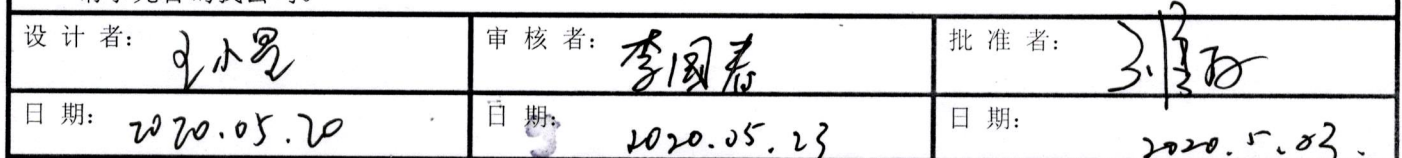 设计者: 王小星 审核者: 李国春 批准者:
日期: 2020.05.20 日期: 2020.05.23 日期: 2020.5.23.